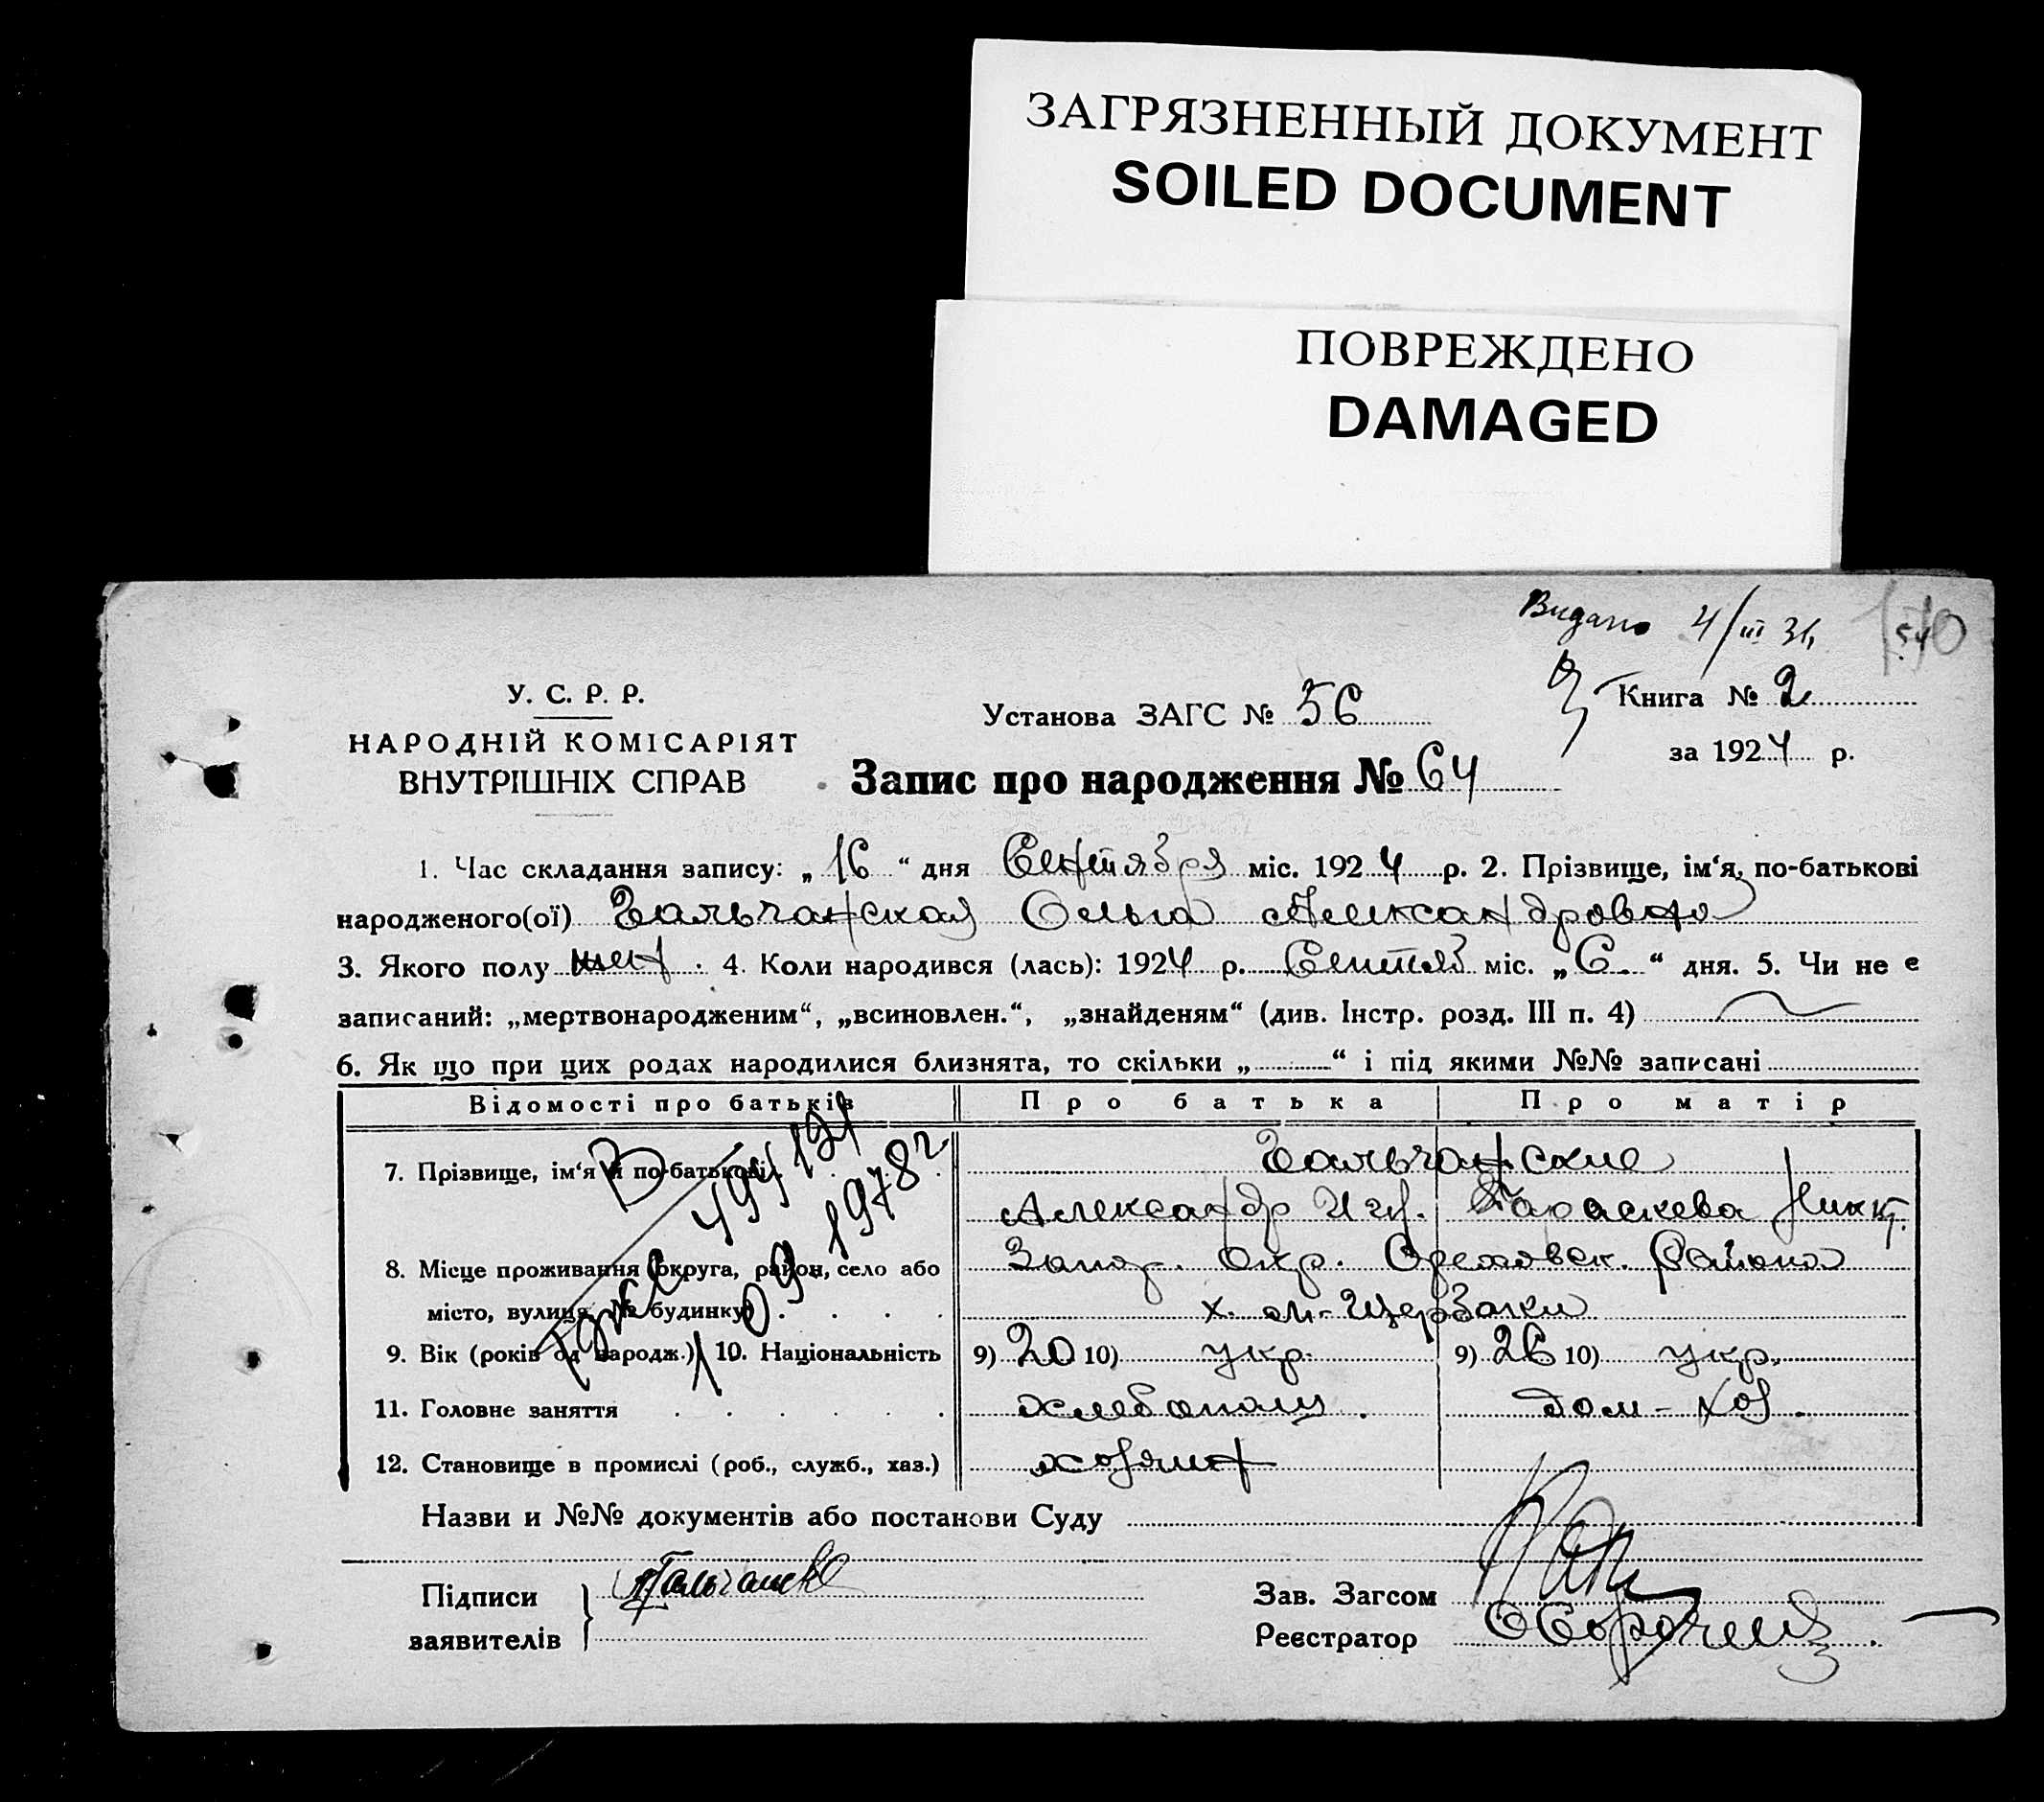 ЗАГРЯЗНЕННЫЙ ДОКУМЕНТ
SOILED DOCUMENT
ПОВРЕЖДЕНО
DAMAGED
Видано 4/III 31
У. С. Р. Р.
НАРОДНІЙ КОМІСАРІЯТ
ВНУТРІШНІХ СПРАВ
Установа ЗАГС № 56
Книга № 2
за 1924 р.
Запис про народження № 64
1. Час складання запису: „16“ дня Сентября міс. 1924 р. 2. Прізвище, ім‘я, по-батькові
народженого(ої) Гальчанская Ольга Александровна
3. Якого полу жен. 4. Коли народився (лась): 1924 р. Сентяб міс. „6“ дня. 5. Чи не є
записаний: „мертвонародженим“, „всиновлен.“, „знайденям“ (див. Інстр. розд. III п. 4)
6. Як що при цих родах народилися близнята, то скільки „ “ і під якими №№ записані
Відомості про батьків Про батька Про матір
7. Прізвище, ім‘я й по-батькові Гальчанские
Александр Параскева Никит.
8. Місце проживання (округа, район, село або Запор. окр. Ореховск. Района
місто, вулиця, № будинку) х. м-Щербаки
9. Вік (років од народж.) 10. Національність 9) 20 10) укр. 9) 26 10) укр.
11. Головне заняття хлебопаш. дом-хоз.
12. Становище в промислі (роб., служб., хаз.) хозяин
1978 г
Назви и №№ документів або постанови Суду
Підписи Гальчанск
заявителів
Зав. Загсом
Реєстратор